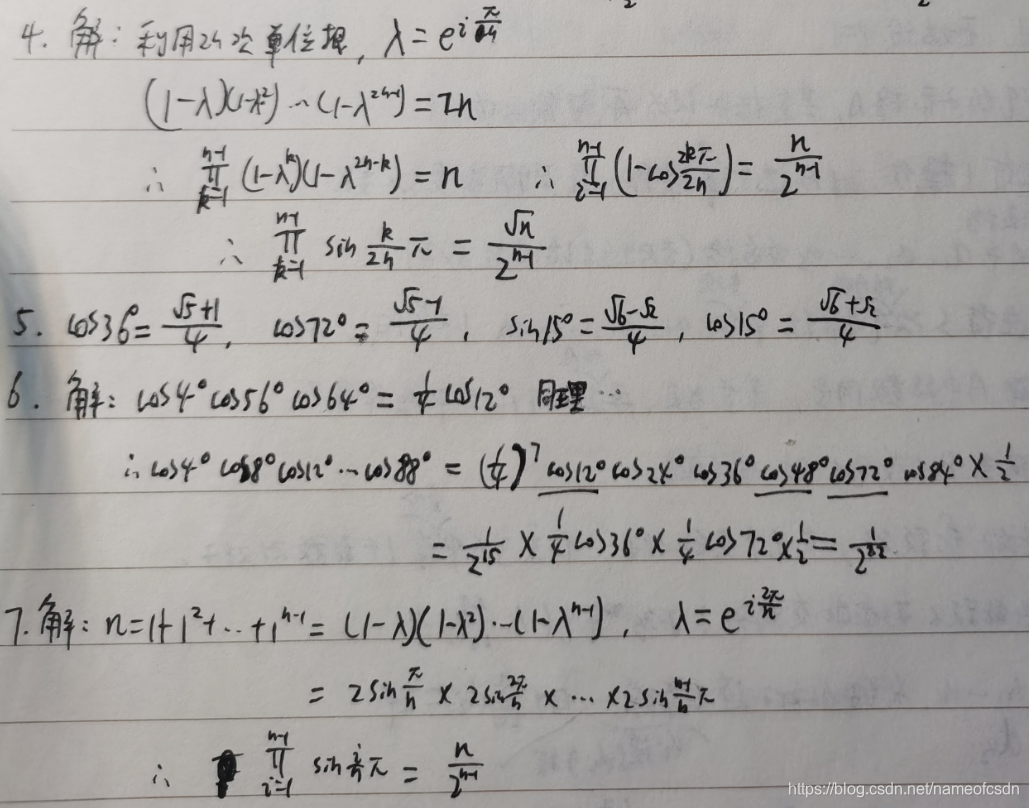 4. 解: 利用2n次单位根, λ = e^{i π/n}
(1-λ)(1-λ²)⋯(1-λ^{2n-1}) = 2n
∴ ∏_{k=1}^{n-1} (1-λ^k)(1-λ^{2n-k}) = n ∴ ∏_{i=1}^{n-1} (1-cos 2kπ/2n) = n/2^{n-1}
∴ ∏_{k=1}^{n-1} sin k/2n π = √n/2^{n-1}
5. cos36° = (√5+1)/4, cos72° = (√5-1)/4, sin15° = (√6-√2)/4, cos15° = (√6+√2)/4
6. 解: cos4° cos56° cos64° = 1/4 cos12° 同理⋯
∴ cos4° cos8° cos12° ⋯ cos88° = (1/4)^7 cos12° cos24° cos36° cos48° cos72° cos84° × 1/2
= 1/2^{15} × 1/4 cos36° × 1/4 cos72° × 1/2 = 1/2^{22}
7. 解: n = 1+1²+⋯+1^{n-1} = (1-λ)(1-λ²)⋯(1-λ^{n-1}), λ = e^{i 2π/n}
= 2sin π/n × 2sin 2π/n × ⋯ × 2sin (n-1)/n π
∴ ∏_{i=1}^{n-1} sin i/n π = n/2^{n-1}
https://blog.csdn.net/nameofcsdn